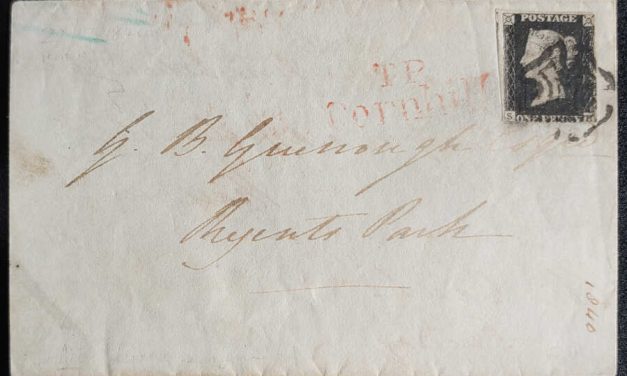 POSTAGE
ONE PENNY
S
T.P.
Cornhill
G. B. Greenough Esqre
Regents Park
1840